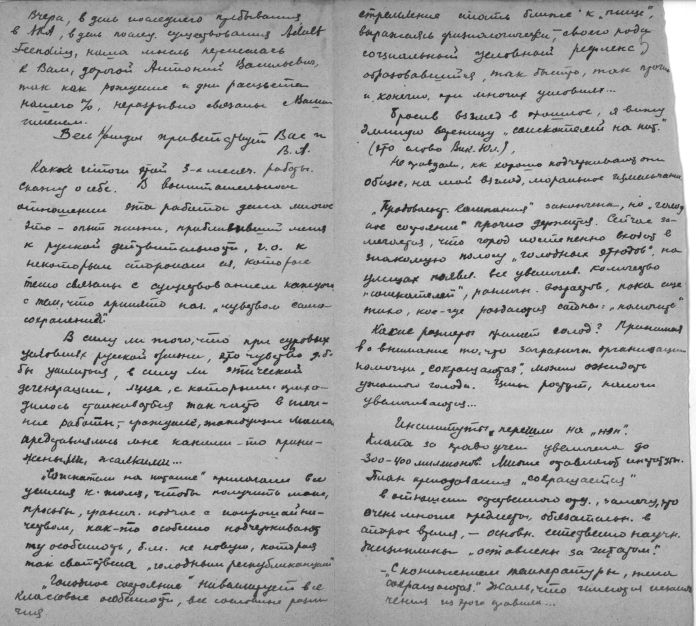 Вчера, в день последнего пребывания
в АRА, в день послед. существования Adult
Feeding, наша мысль перенеслась
к Вам, дорогой Антоний Васильевич,
так как рождение и дни расцвета
нашего %, неразрывно связаны с Вашим
именем.
Весь % приветствует Вас и
В.А.
Какие итоги этой 3-х месяч. работы.
Скажу о себе. В воспитательном
отношении эта работа дала многое
это - опыт жизни, приблизивший меня
к русской действительности, т.о. к
некоторым сторонам ея, которые
тесно связаны с существованием
с тем, что принято наз. "чувством само-
сохранения"
В силу ли того, что при суровых
условиях русской жизни, это чувство д.б.
бы усилиться, в силу ли этической
дегенерации, лица, с которыми прихо-
дилось сталкиваться так часто в тече-
ние работы, - граждане,
представлялись мне какими-то прини-
женными, жалкими...
"Искатели на питание" прилагали все
усилия к тому, чтобы получить
просьбы, гранич. подчас с попрошайни-
чеством, как-то особенно подчеркивают
ту особенность, б.м. не новую, которая
так свойственна "голодным республиканцам"
"Голодное состояние" нивелирует все
классовые особенности, все сословные разли-
чия.
стремление стоять ближе к "пище",
выражаясь физиологически - своего рода
социальный условный рефлекс)
образовавшийся, так быстро, так прочно
и, конечно, при многих условиях...
Бросив взгляд в прошлое, я вижу
длинную вереницу "соискателей на пит."
(это слово Вик. Юл.),
Не правда ли, как хорошо подчеркивают они
общее, на мой взгляд, моральное измельчание
"Продовольст. Кампания" закончена, но "голод-
ное состояние" прочно держится. Сейчас за-
мечается, что город постепенно входит в
знакомую полосу "голодных этюдов", на
улицах появил. все увелич. количество
"соискателей", различн. возрастов, пока еще
тихо, кое-где раздаются стоны: "помогите"
Какие размеры примет голод? Принимая
во внимание то, что загранич. организации
помощи "сокращаются", можно ожидать
ужасного голода. Цены растут, налоги
увеличиваются...
Институты перешли на "нэп".
Плата за право учен. увеличена до
300-400 миллионов. Многие оставляют институты.
План преподавания "сокращается"
в отношении
очень многие предметы, обязательн. в
второе время, - основн. естественно научн.
дисциплины "оставлены за штатом".
- С понижением температуры, тела
"сокращаются". Жаль, что имеются исклю-
чения из этого правила...